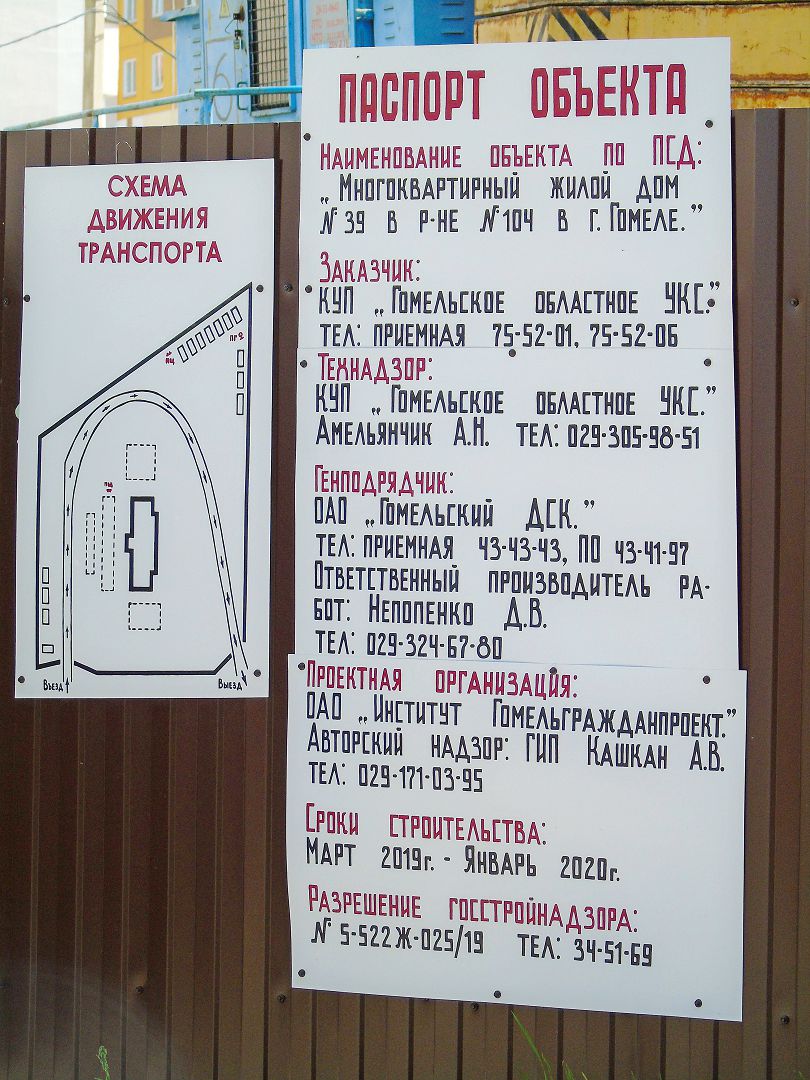 СХЕМА
ДВИЖЕНИЯ
ТРАНСПОРТА
Въезд
Выезд
ПАСПОРТ ОБЪЕКТА
Наименование объекта по ПСД:
„Многоквартирный жилой дом
№39 в р-не №104 в г. Гомеле.”
Заказчик:
КУП „Гомельское областное УКС.”
тел: приемная 75-52-01, 75-52-06
Технадзор:
КУП „Гомельское областное УКС.”
Амельянчик А.Н. тел: 029-305-98-51
Генподрядчик:
ОАО „Гомельский ДСК.”
тел: приемная 43-43-43, ПО 43-41-97
Ответственный производитель ра-
бот: Непопенко Д.В.
тел: 029-324-67-80
Проектная организация:
ОАО „Институт Гомельгражданпроект.”
Авторский надзор: ГИП Кашкан А.В.
тел: 029-171-03-95
Сроки строительства:
Март 2019г. - Январь 2020г.
Разрешение госстройнадзора:
№ 5-522Ж-025/19 тел: 34-51-69